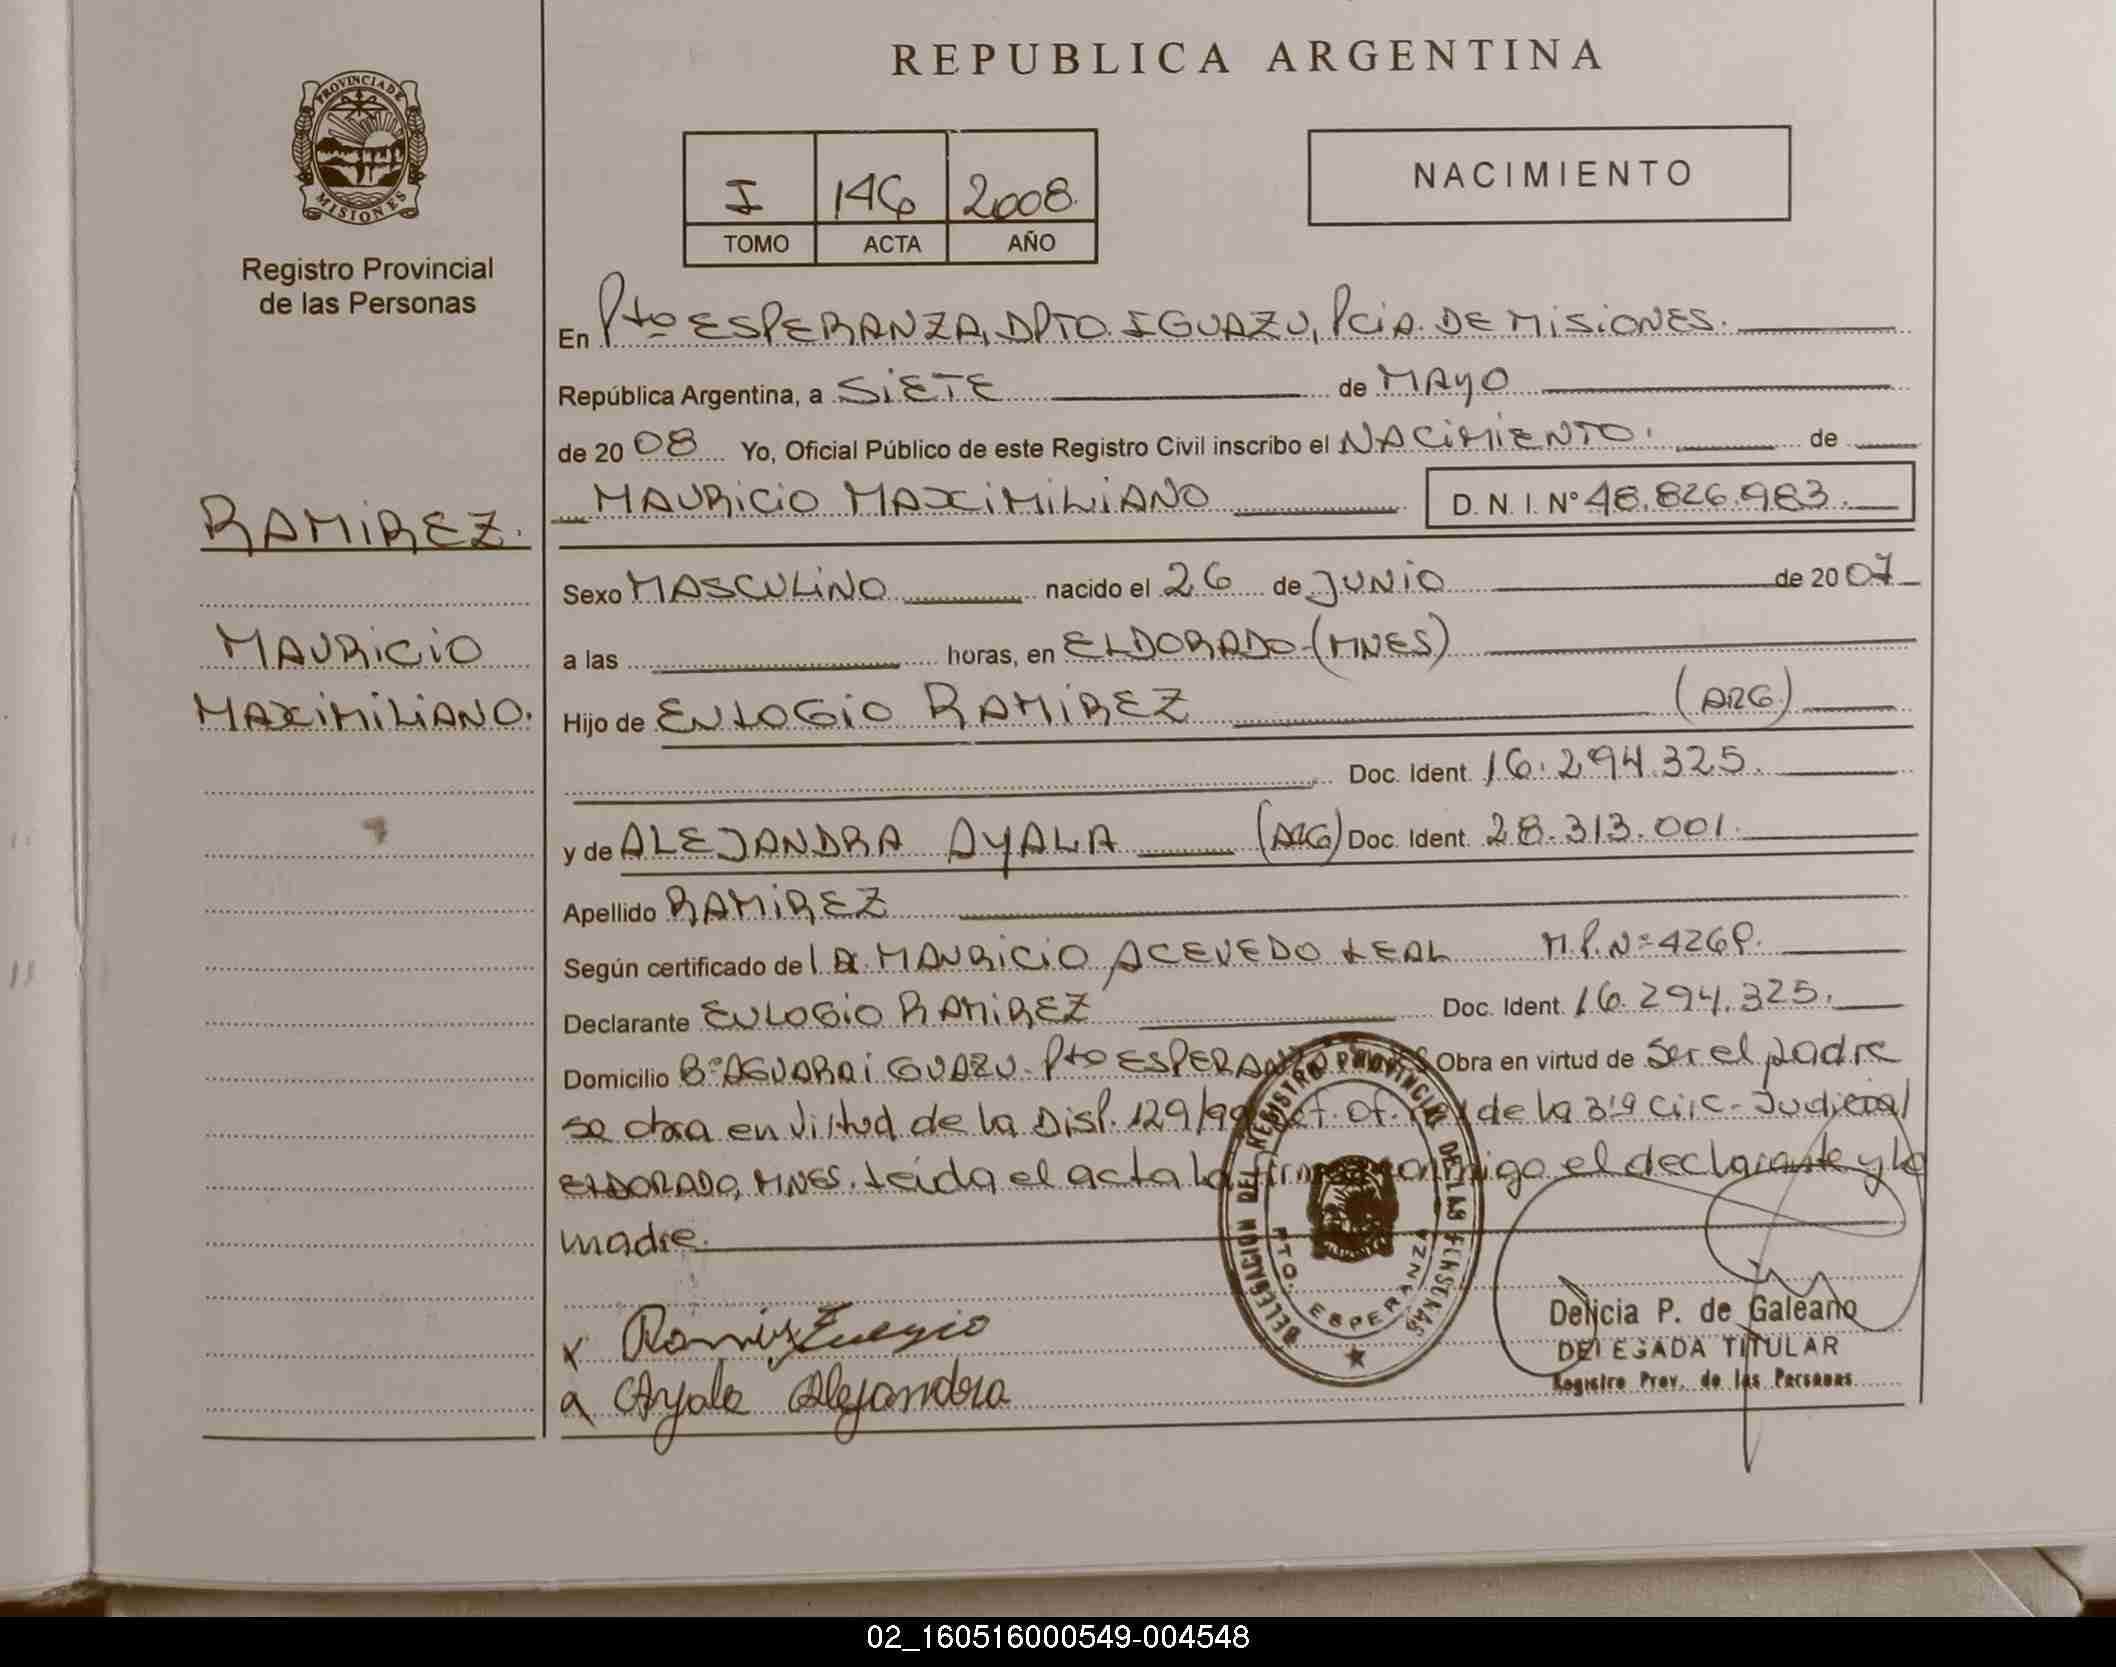 REPUBLICA ARGENTINA
PROVINCIA DE
MISIONES
Registro Provincial
de las Personas
I 146 2008.
TOMO ACTA AÑO
NACIMIENTO
En Pto ESPERANZA, DPTO. IGUAZU, PciA. DE MiSiONES.
República Argentina, a SiETE de MAyO
de 20 08 Yo, Oficial Público de este Registro Civil inscribo el NACiMiENTO. de
MAURiCiO MAXiMiLiANO D. N. I. N° 48.826.983.
RAMiREZ.
MAURiCiO
MAXiMiLiANO.
Sexo MASCULiNO nacido el 26 de JUNiO de 20 07
a las horas, en ELDORADO-(MNES)
Hijo de EULOGiO RAMiREZ (ARG)
Doc. Ident. 16.294.325.
y de ALEJANDRA AyALA (ARG) Doc. Ident. 28.313.001.
Apellido RAMiREZ
Según certificado de l Dr. MAURiCiO ACEVEDO LEAL M.P.Nº 426P.
Declarante EULOGiO RAMiREZ Doc. Ident. 16.294.325.
Domicilio Bº AGUARAi GUAZU. Pto ESPERANZA Obra en virtud de ser el padre
se obra en virtud de la Disp. 129/99 de la 3ra Circ. Judicial
ELDORADO, MNES. Leida el acta la firma conmigo el declarante y la
madre.
DELEGACION DEL REGISTRO PROVINCIAL DE LAS PERSONAS
PTO. ESPERANZA
x Ramirez Eulogio
a Ayala Alejandra
Delicia P. de Galeano
DELEGADA TITULAR
Registro Prov. de las Personas
02_160516000549-004548